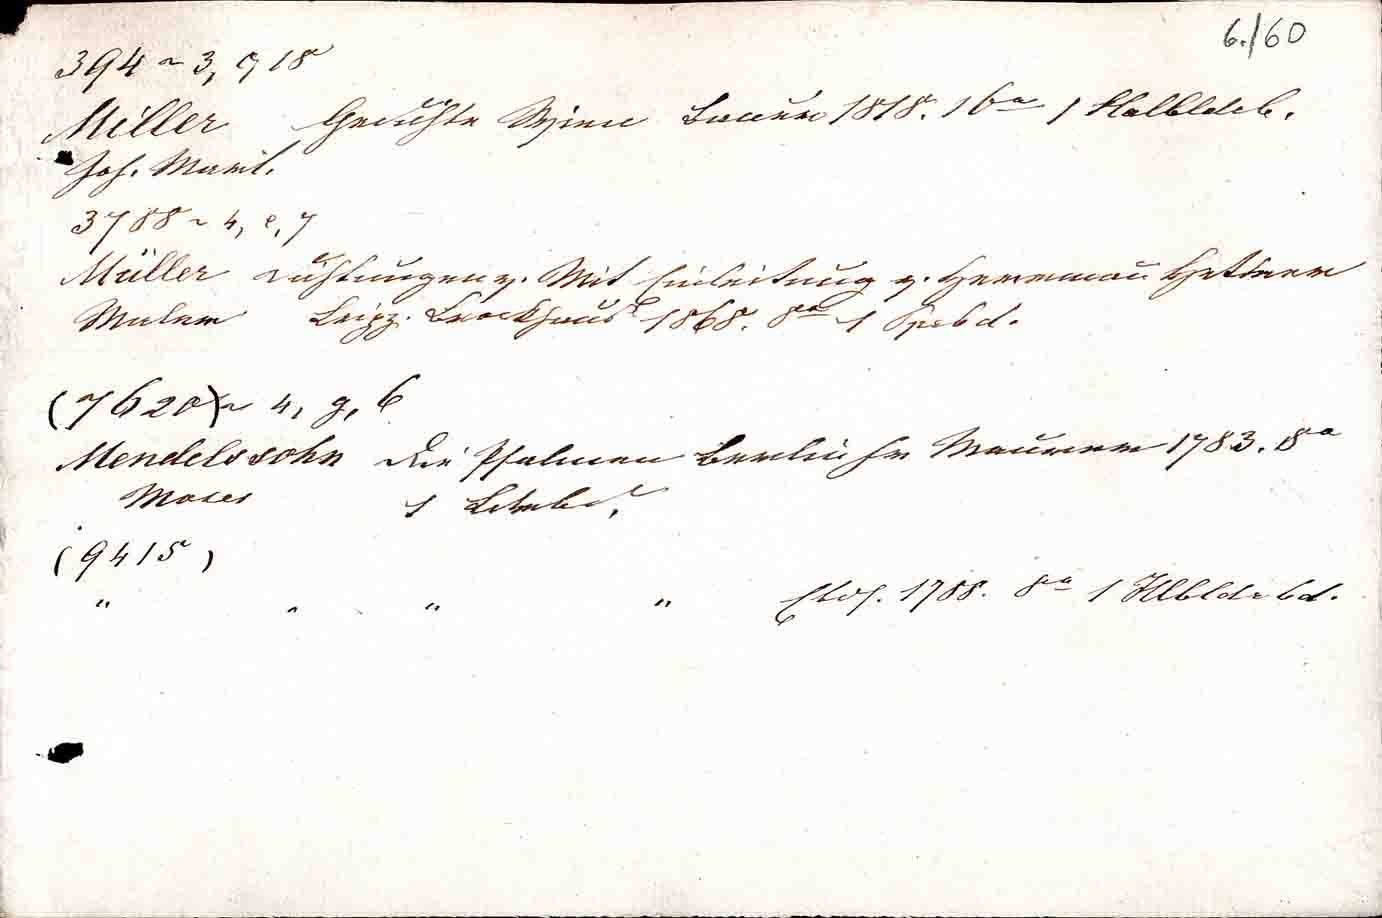 6./60
394 ~ 3, g 18
Miller Gedichte Wien Bauer 1818. 16° 1 Halbldrb.
Joh. Mart.
3788 ~ 4, e, 7
Müller Dichtungen v. Mit Einleitung v. Hermann Hettner
Maler Leipz. Brockhaus 1868. 8° 1 Ppbd.
(7620) ~ 4, g, 6
Mendelssohn Die Psalmen Berlin Fr Maurer 1783. 8°
Moses 1
(9415)
" " " " 1788. 8° 1 Hlbldrbd.